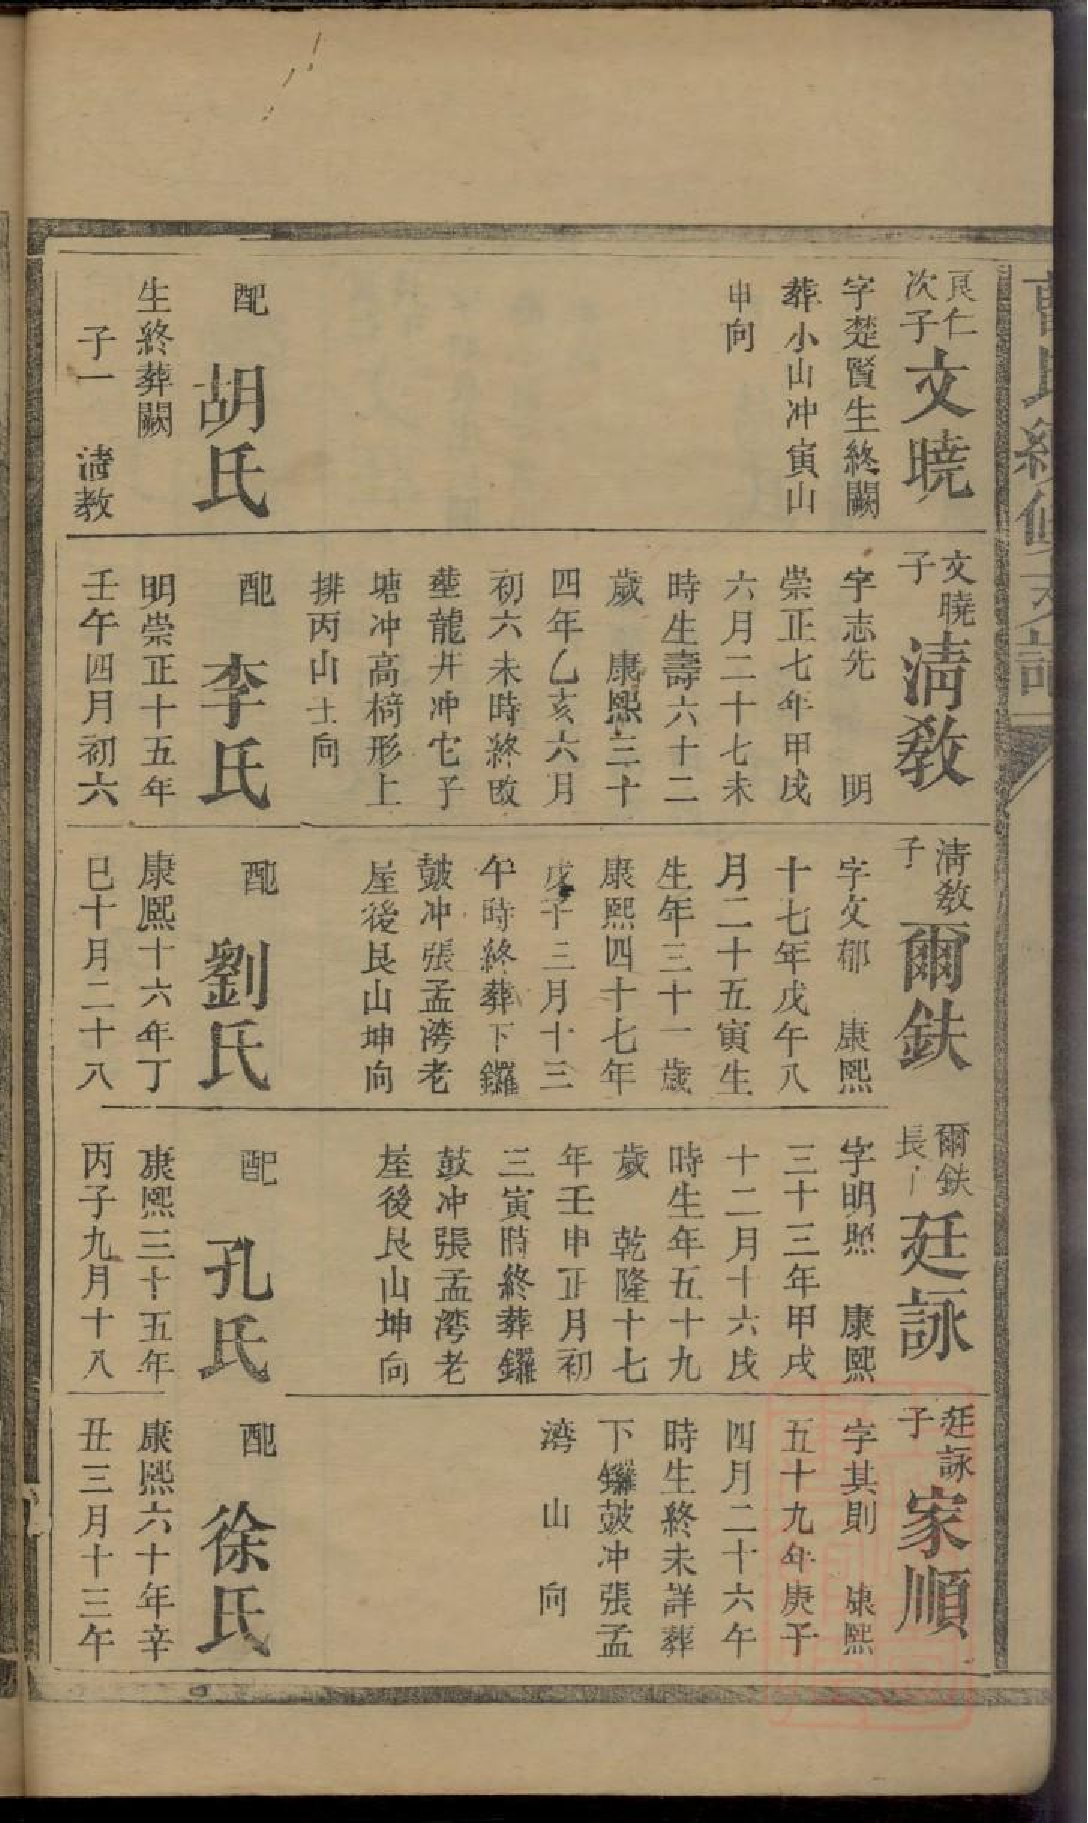 良仁
次子
文曉
字楚賢生終闕
葬小山冲寅山
申向
配
胡氏
生終葬闕
子一 淸敎
文曉
子
淸敎
字志先 明
崇正七年甲戌
六月二十七未
時生壽六十二
歲 康熙三十
四年乙亥六月
初六未時終
塟龍井冲屯子
塘冲高椅形上
排丙山壬向
配
李氏
明崇正十五年
壬午四月初六
淸敎
子
爾鈇
字文郁 康熙
十七年戊午八
月二十五寅生
生年三十一歲
康熙四十七年
戊子三月十三
午時終葬下鑼
皷冲張孟湾老
屋後艮山坤向
配
劉氏
康熙十六年丁
巳十月二十八
爾鈇
長子
廷詠
字明照 康熙
三十三年甲戌
十二月十六戌
時生年五十九
歲 乾隆十七
年壬申正月初
三寅時終葬鑼
鼓冲張孟湾老
屋後艮山坤向
配
孔氏
康熙三十五年
丙子九月十八
廷詠
子
家順
字其則 康熙
五十九年庚子
四月二十六午
時生終未詳葬
下鑼皷冲張孟
湾 山 向
配
徐氏
康熙六十年辛
丑三月十三午